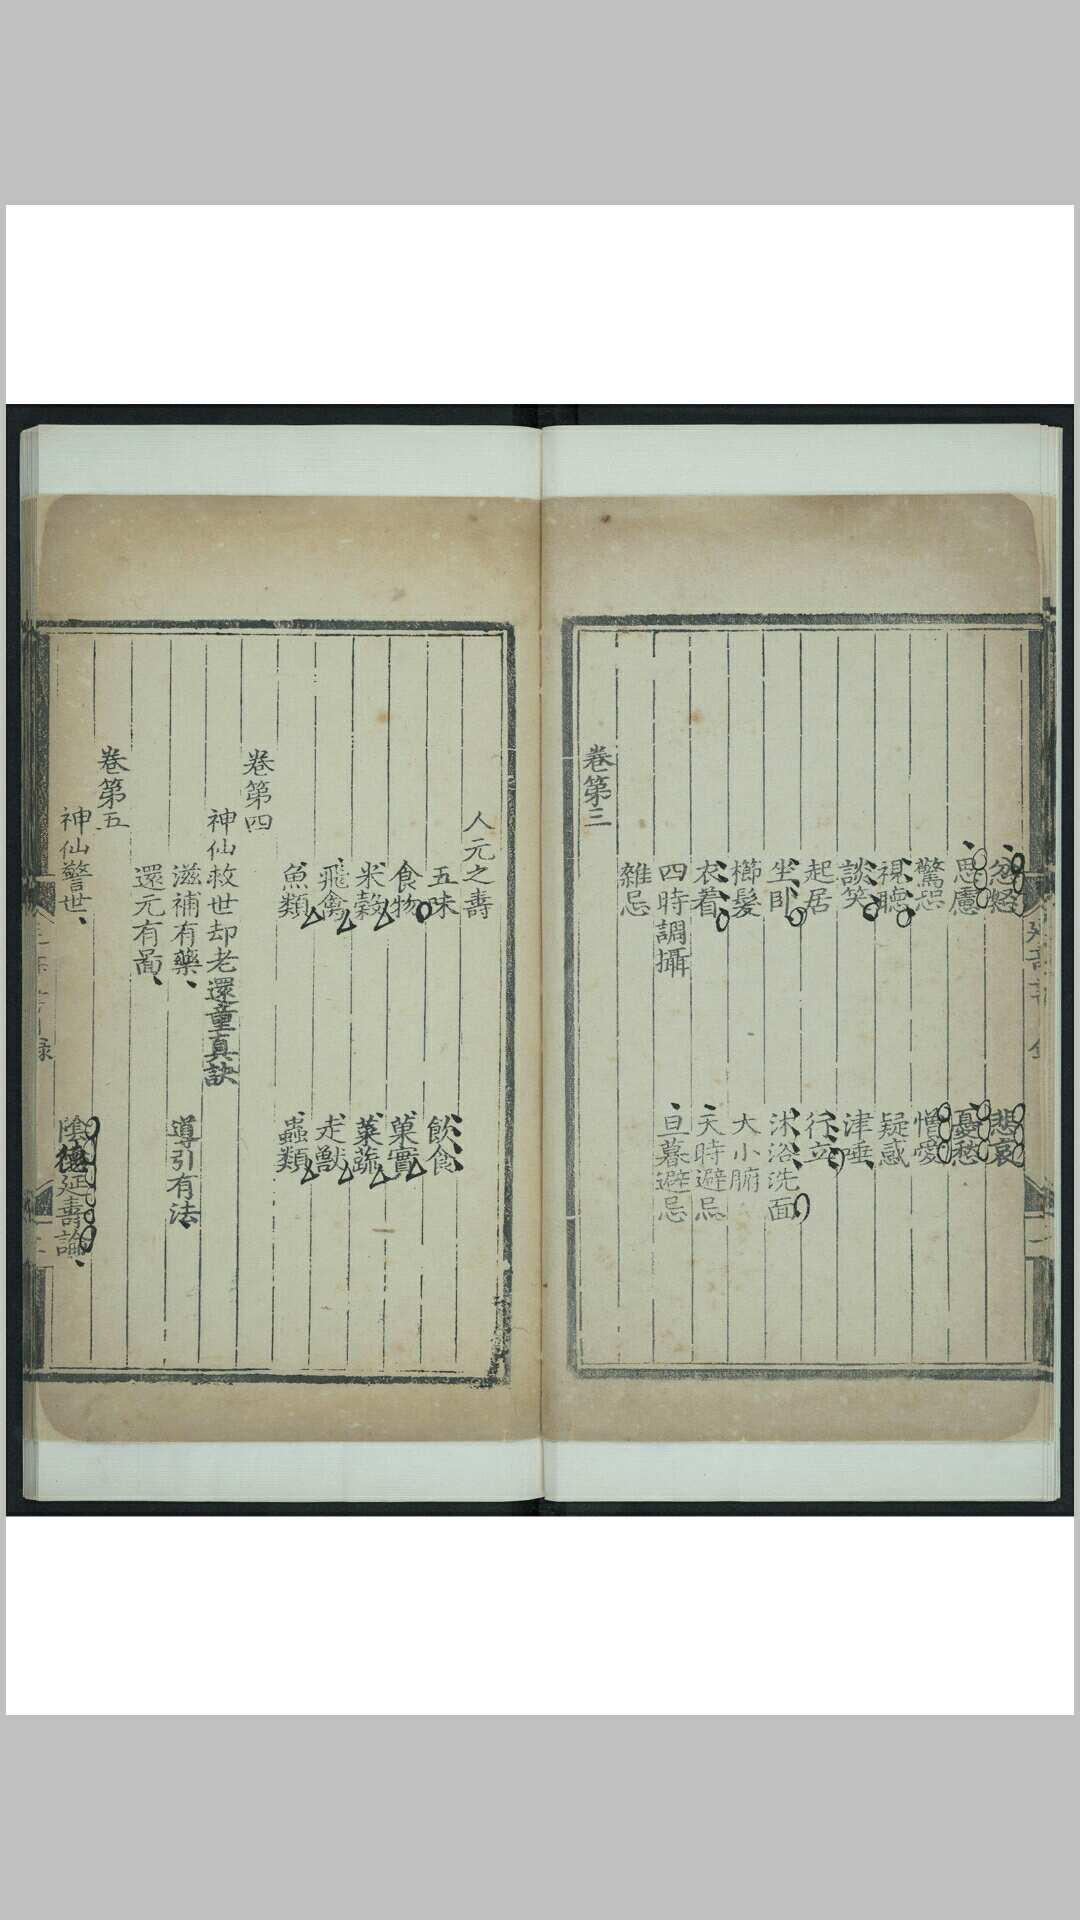 忿怒 悲哀
思慮 憂愁
驚恐 憎愛
視聽 疑惑
談笑 津唾
起居 行立
坐卧 沐浴洗面
櫛髮 大小腑
衣着 天時避忌
四時調攝 旦暮避忌
雜忌
卷第三
人元之壽
五味 飲食
食物 菓實
米穀 菜蔬
飛禽 走獸
魚類 蟲類
卷第四
神仙救世却老還童真訣
滋補有藥 導引有法
還元有啚
卷第五
神仙警世 陰德延壽論